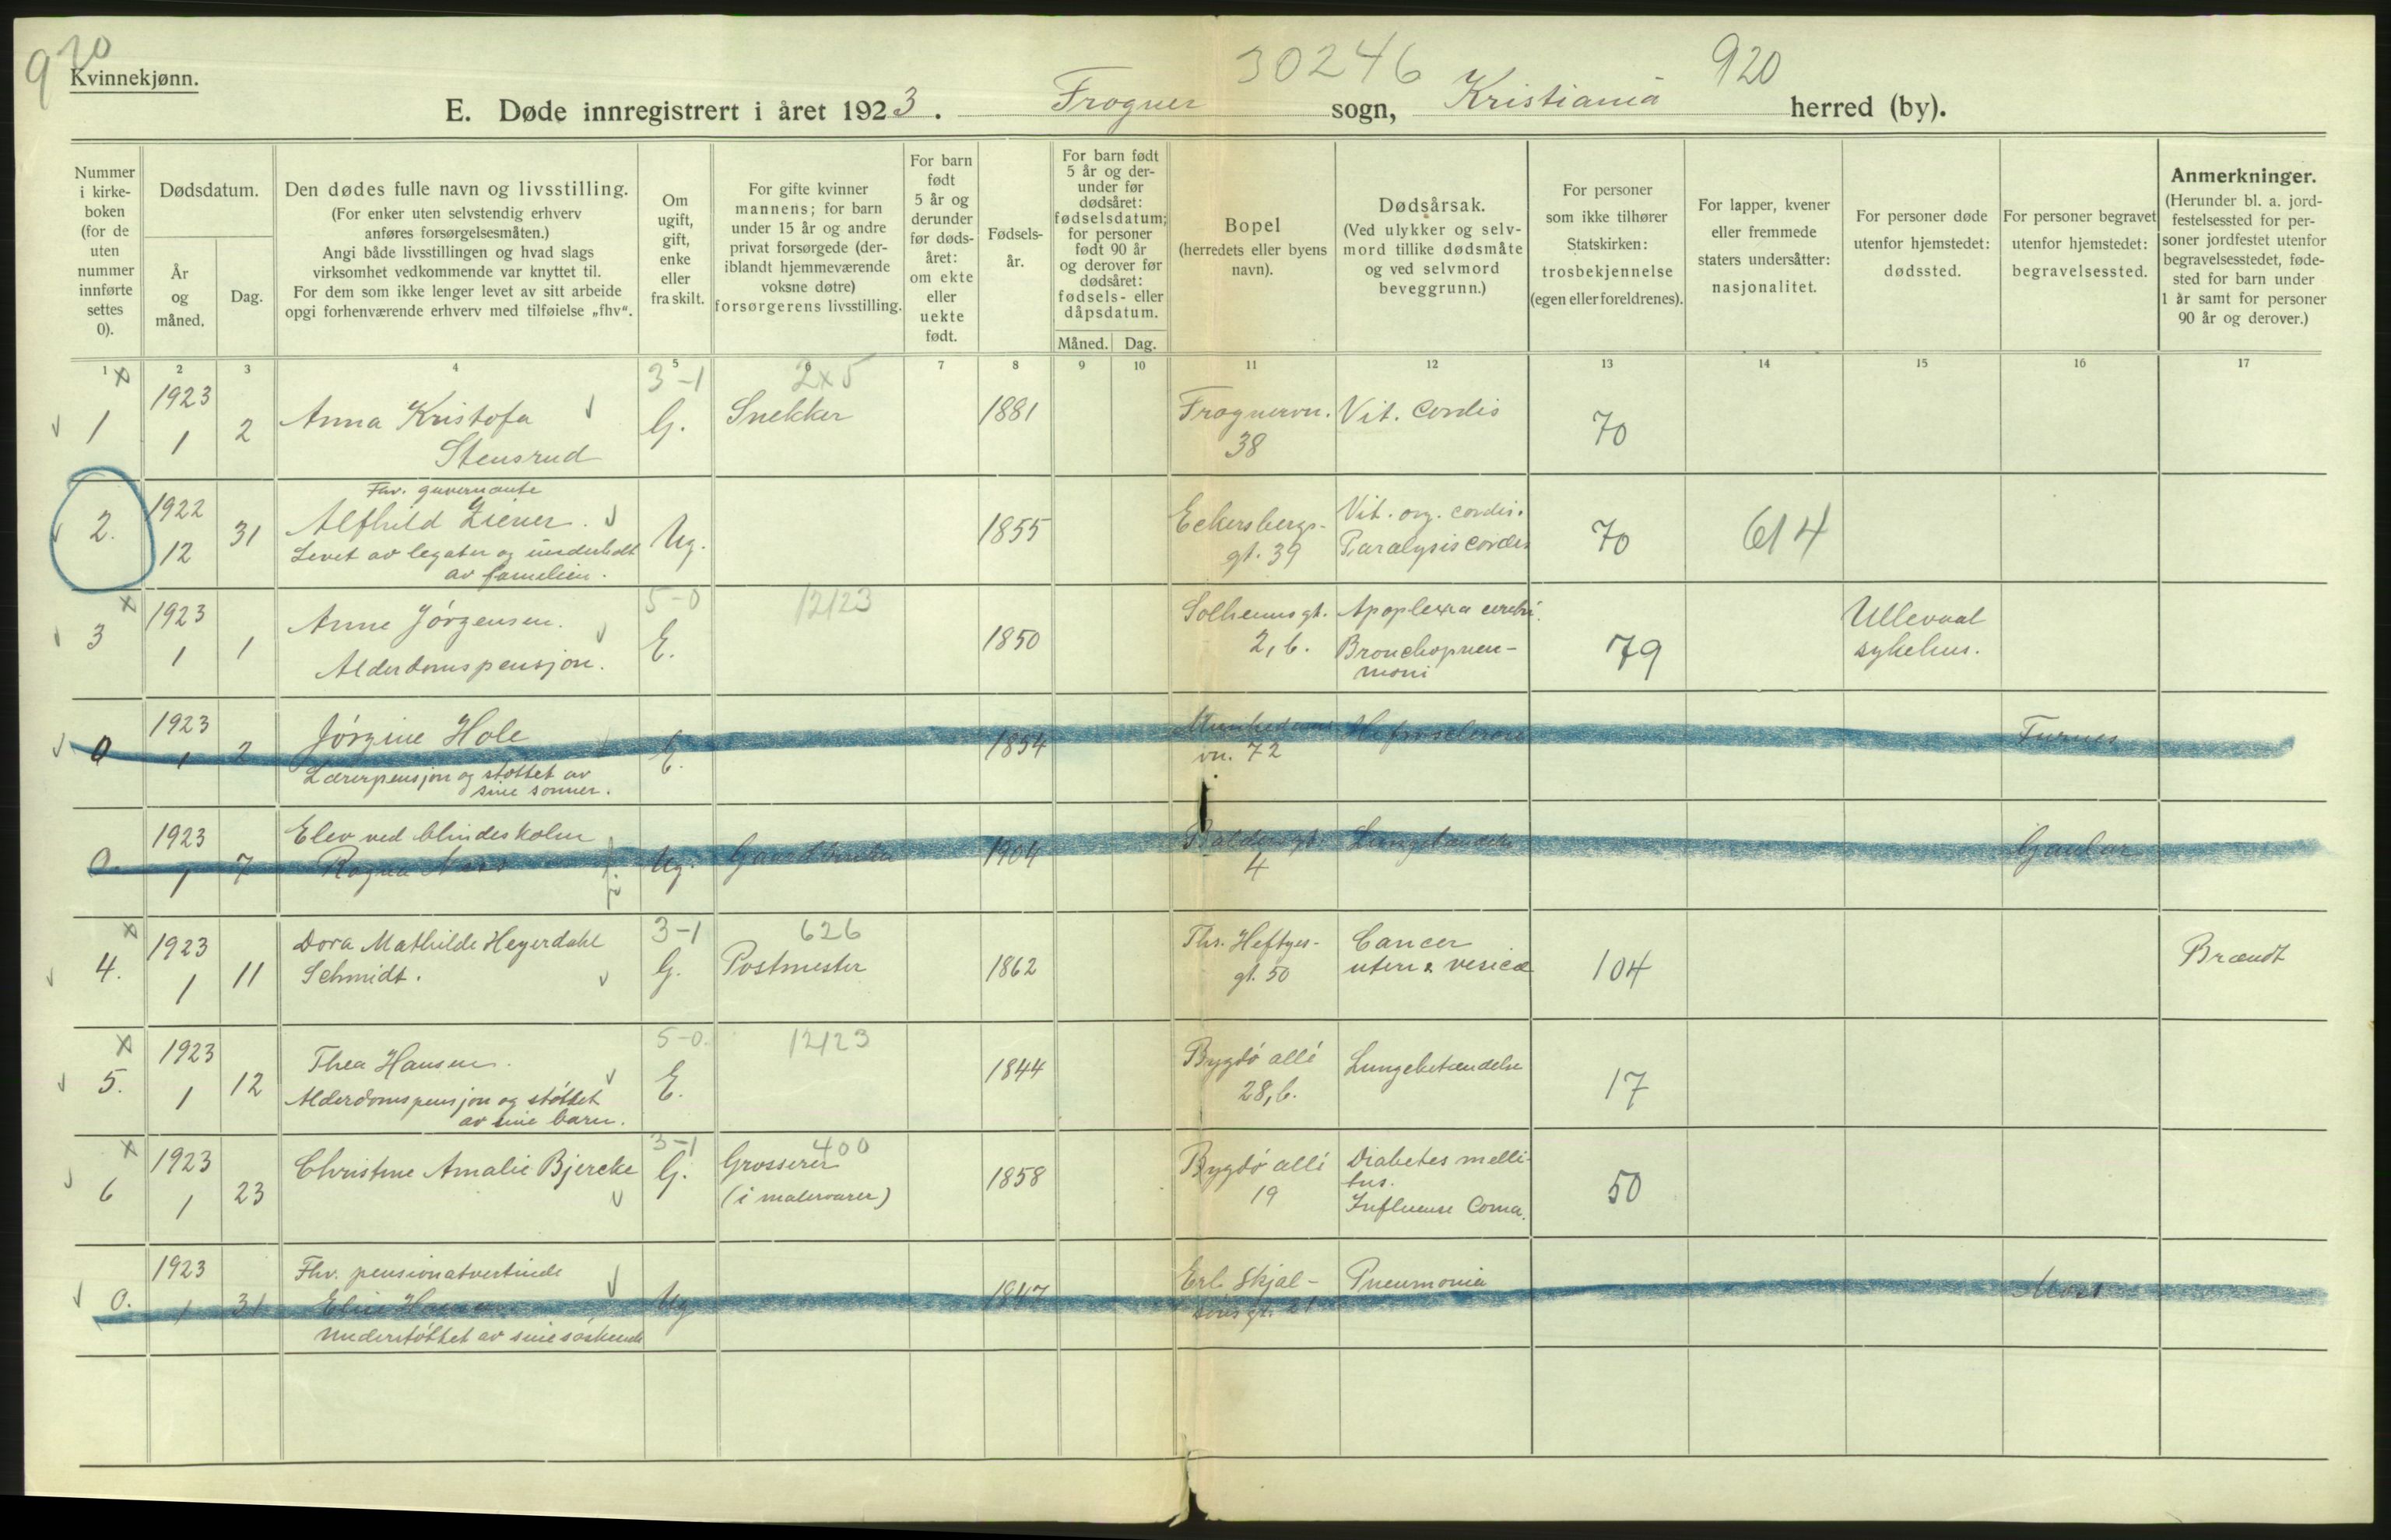 920
30246
920
Kvinnekjønn.
E. Døde innregistrert i året 1923. Frogner sogn, Kristiania herred (by).
Nummer i kirkeboken (for de uten nummer innførte settes 0).
Dødsdatum.
År og måned.
Dag.
Den dødes fulle navn og livsstilling.
(For enker uten selvstendig erhverv
anføres forsørgelsesmåten.)
Angi både livsstillingen og hvad slags
virksomhet vedkommende var knyttet til.
For dem som ikke lenger levet av sitt arbeide
opgi forhenværende erhverv med tilføielse „fhv“.
Om ugift, gift, enke eller fraskilt.
For gifte kvinner
mannens; for barn
under 15 år og andre
privat forsørgede (der-
iblandt hjemmeværende
voksne døtre)
forsørgerens livsstilling.
For barn født 5 år og derunder før døds-året: om ekte eller uekte født.
Fødsels-år.
For barn født
5 år og der-
under før
dødsåret:
fødselsdatum;
for personer
født 90 år
og derover før
dødsåret:
fødsels- eller
dåpsdatum.
Måned. Dag.
Bopel
(herredets eller byens
navn).
Dødsårsak.
(Ved ulykker og selv-
mord tillike dødsmåte
og ved selvmord
beveggrunn.)
For personer
som ikke tilhører
Statskirken:
trosbekjennelse
(egen eller foreldrenes).
For lapper, kvener
eller fremmede
staters undersåtter:
nasjonalitet.
For personer døde
utenfor hjemstedet:
dødssted.
For personer begravet
utenfor hjemstedet:
begravelsessted.
Anmerkninger.
(Herunder bl. a. jord-
festelsessted for per-
soner jordfestet utenfor
begravelsesstedet, føde-
sted for barn under
1 år samt for personer
90 år og derover.)
1 2 3 4 5 7 8 9 10 11 12 13 14 15 16 17
3-1 2x5
1 1923 1 2 Anna Kristofa
Stensrud G. Snekker 1881 Frognervn.
38 Vit. Cordis 70
2. 1922 12 31 Fhv. guvernante
Alfhild Ziener.
Levet av legater og underholdt
av familien. Ug. 1855 Eckersbergs-
gt. 39 Vit. org. cordis.
Paralysis cordis 70 614
5-0 12123
3 1923 1 1 Anne Jörgensen.
Alderdomspensjon. E. 1850 Solheimsgt.
2, b. Apoplexia cerebri.
Bronchopneu-
moni 79 Ullevaal
sykehus.
0 1923 1 2 Jörgine Hole
Lærerpensjon og støttet av
sine sønner. E. 1854 Munkedams
vn. 72 Furnes
0. 1923 1 7 Elev ved blindeskolen
Ragna Ness Ug. 1904 Balders gt.
4 Lungebetændelse Gaular
3-1 626
4. 1923 1 11 Dora Mathilde Heyerdahl
Schmidt. G. Postmester 1862 Ths. Heftyes-
gt. 50 Cancer
uteri & vesicæ 104 Brændt
5-0. 12123
5. 1923 1 12 Thea Hansen.
Alderdomspensjon og støttet
av sine barn. E. 1844 Bygdö allé
28, b. Lungebetændelse 17
3-1 400
6 1923 1 23 Christine Amalie Bjercke G. Grosserer
(i malervarer) 1858 Bygdö allé
19 Diabetes melli-
tus.
Influense Coma. 50
0. 1923 1 31 Fhv. pensionatvertinde
Elise Hansen
Understöttet av sine söskende Ug 1847 Erl. Skjal-
sons gt. 21 Pneumonia Moss